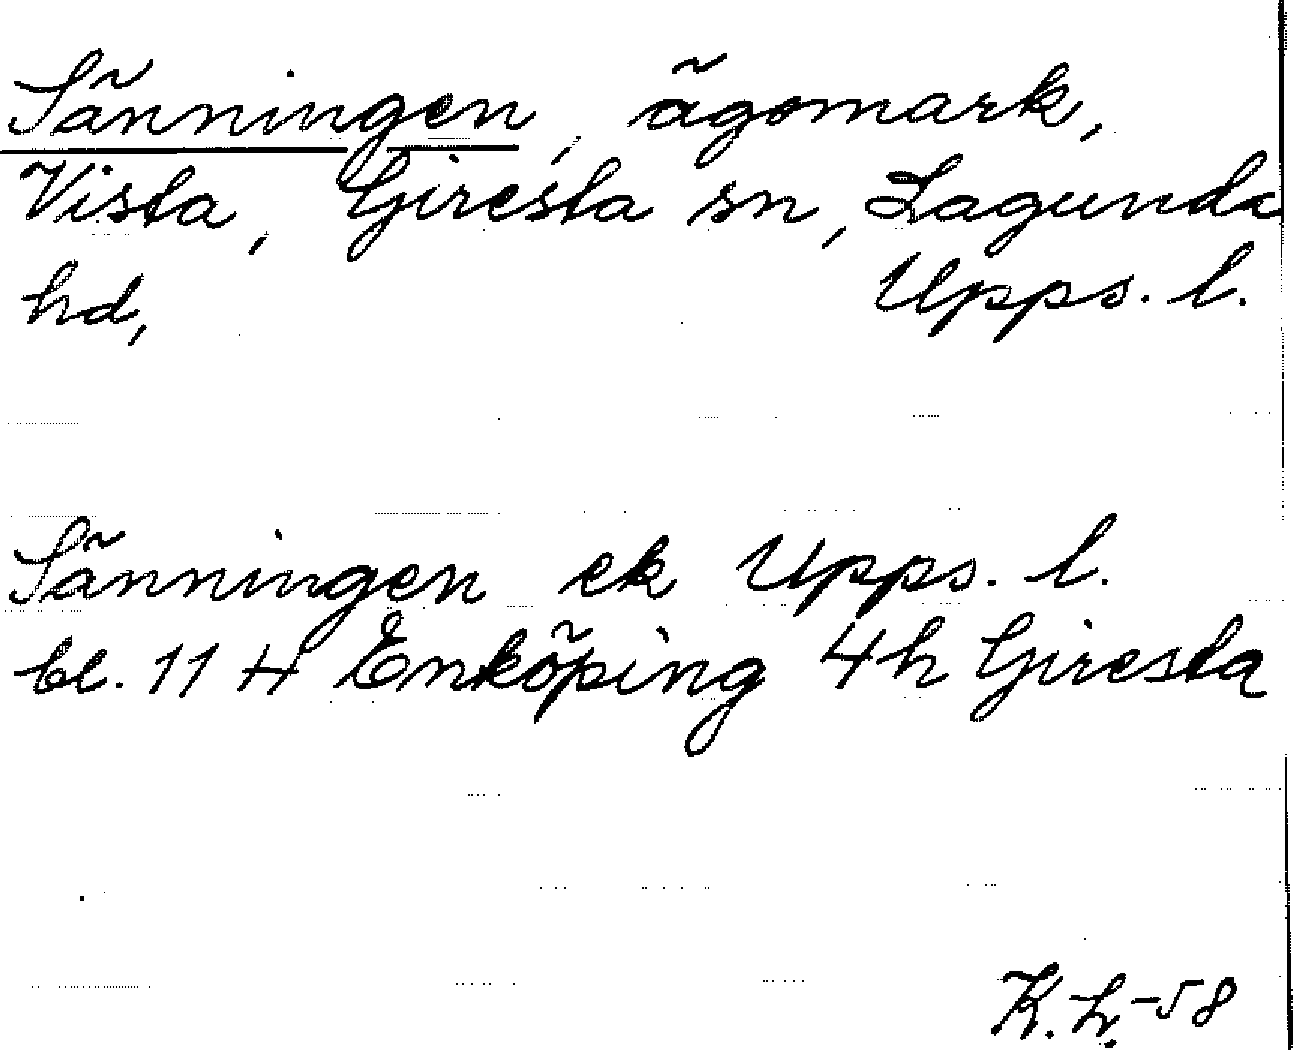 Sänningen, ägomark,
Vista, Giresta sn, Lagunda
hd, Upps. l.
Sänningen ek Upps. l.
bl. 11 H Enköping 4h Giresta
K. L. -58